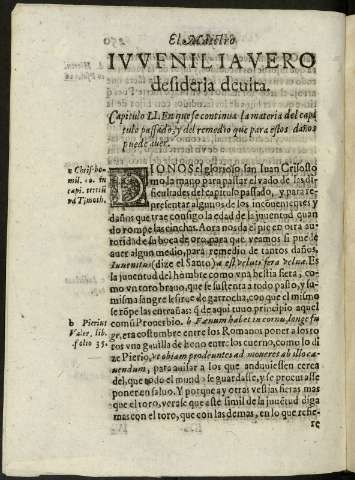 El Maestro
IVVENILIA VERO
desideria deuita.
Capitulo LI. En que se continua la materia del capi
tulo passado, y del remedio que para estos daños
puede auer.
a Chriſ. ho
mil. 10. in
capi. tertiũ
ad Timoth.
DIONOS el glorioso san Iuan Crisosto
mo la mano para passar el vado de las dif
ficultades del capitulo passado, y para re-
presentar algunos de los inconuenientes y
daños que trae consigo la edad de la juuentud quan
do rompe las cinchas. Aora nos da el pie en otra au-
toridad de su boca de oro, para que veamos si puede
auer algun medio, para remedio de tantos daños,
Iuuentus (dize el Santo) est veluti fera belua. Es
la juuentud del hombre como vna bestia fiera, co-
mo vn toro brauo, que se sustenta a todo pasto, y su
misma sangre le sirue de garrocha, con que el mismo
se rõpe las entrañas: de aqui tuuo principio aquel
comũ Prouerbio. b Fænum habet in cornu, longe fu
b Pierius
Valer. lib.
folio 35.
ge, era costumbre entre los Romanos poner a los to
ros vna gauilla de heno entre los cuerno, como lo di
ze Pierio, vt obiam prodeuntes admoueres ab illo ca-
uendum, para auisar a los que anduuiessen cerca
del, que todo el mundo se guardasse, y se procurasse
poner en saluo. Y porque ay otras vestias fieras mas
que el toro, verase que este simil de la juuẽtud diga
mas con el toro, que con las demas, en lo que refie-
re